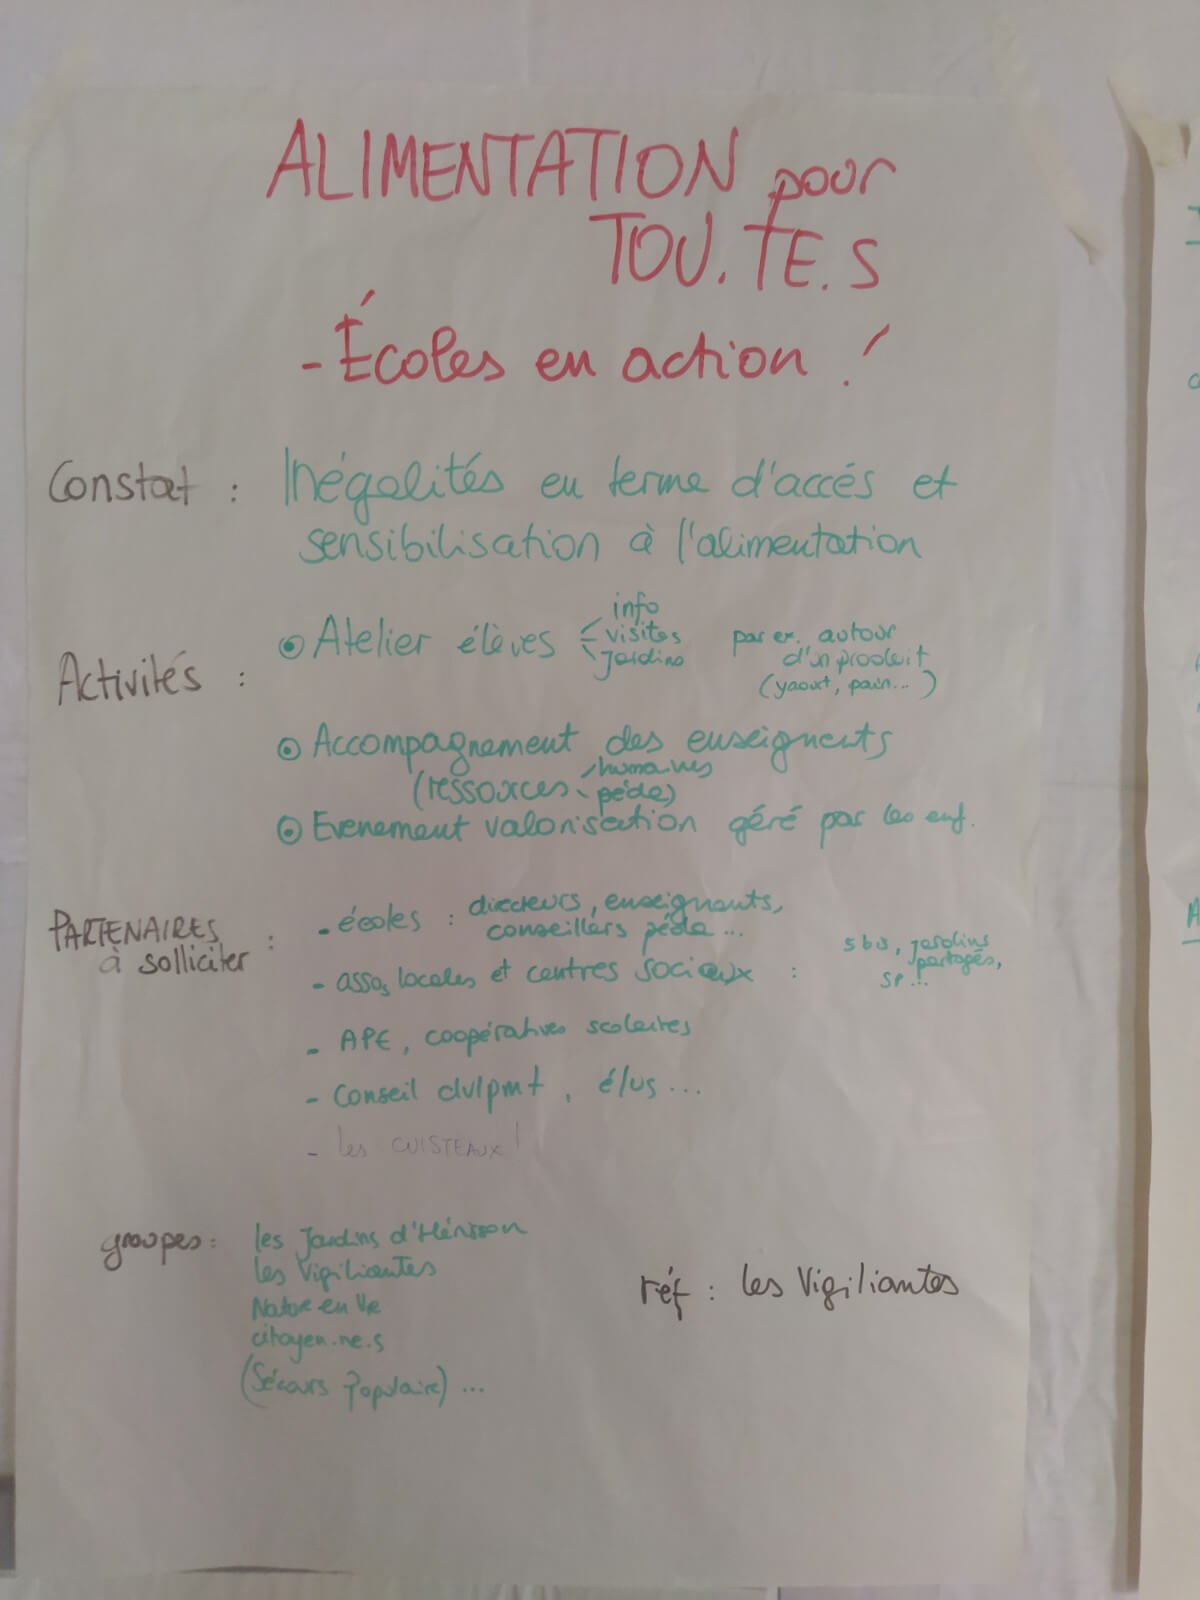 ALIMENTATION pour
TOU.TE.S
- Écoles en action !
Constat : Inégalités en terme d'accés et
sensibilisation à l'alimentation
Activités :
⊙ Atelier élèves
info
visites
jardins
par ex. autour
d'un produit
(yaourt, pain...)
⊙ Accompagnement des enseignents
(ressources humaines
péda)
⊙ Evenement valorisation géré par les enf.
PARTENAIRES
à solliciter :
- écoles : directeurs, enseignants,
conseillers péda ...
- assos locales et centres sociaux :
jardins
partagés,
SP...
- APE, coopératives scolaires
- Conseil dvlpmt, élus ...
- les CUISTEAUX !
groupes : les Jardins d'Hérisson
les Vigiliantes
Nature en Vie
citoyen.ne.s
(Sécours Populaire) ...
réf : les Vigiliantes